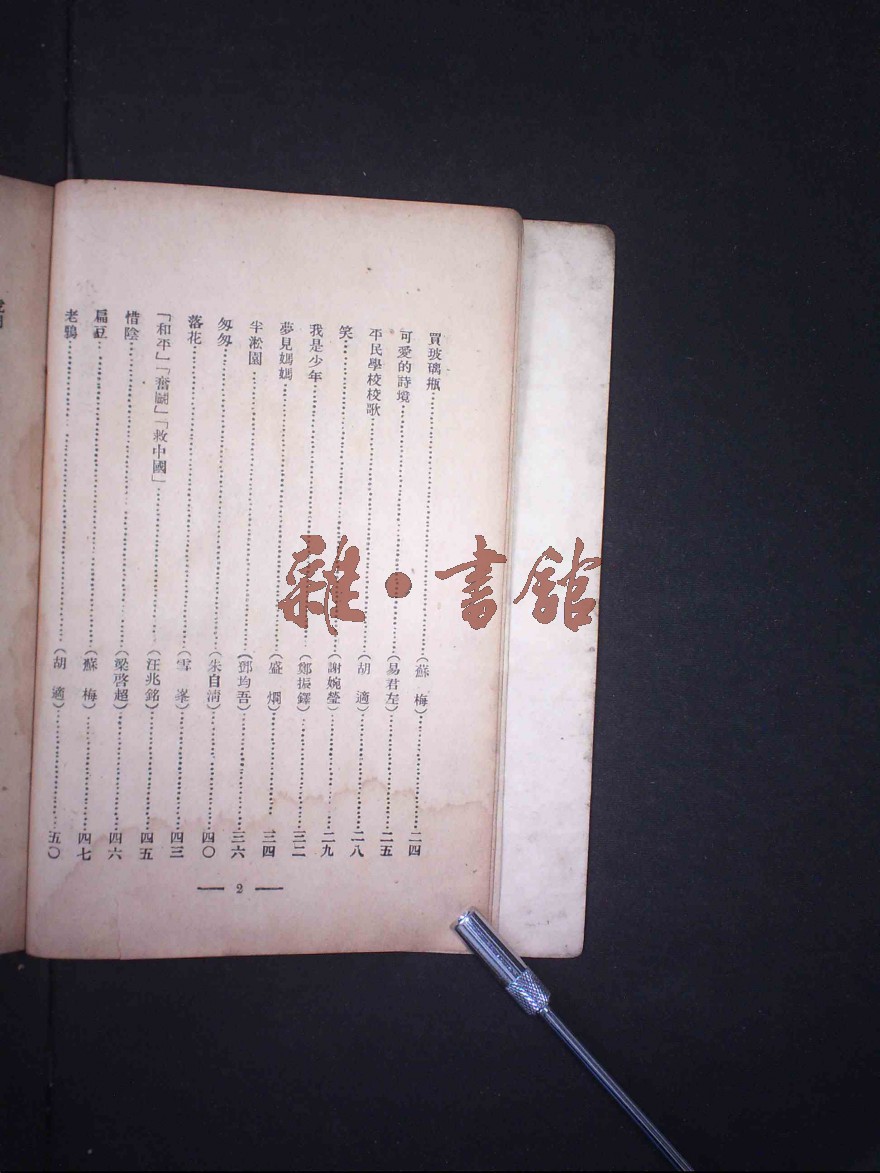 買玻璃瓶……(蘇　梅)……二四
可愛的詩境……(易君左)……二五
平民學校校歌……(胡　適)……二八
笑……(謝婉瑩)……二九
我是少年……(鄭振鐸)……三二
夢見媽媽……(盛　炯)……三四
半淞園……(鄧均吾)……三六
匆匆……(朱自清)……四〇
落花……(雪　峯)……四三
「和平」「奮鬭」「救中國」……(汪兆銘)……四五
惜陰……(梁啓超)……四六
扁豆……(蘇　梅)……四七
老鴉……(胡　適)……五〇
— 2 —
雜·書館